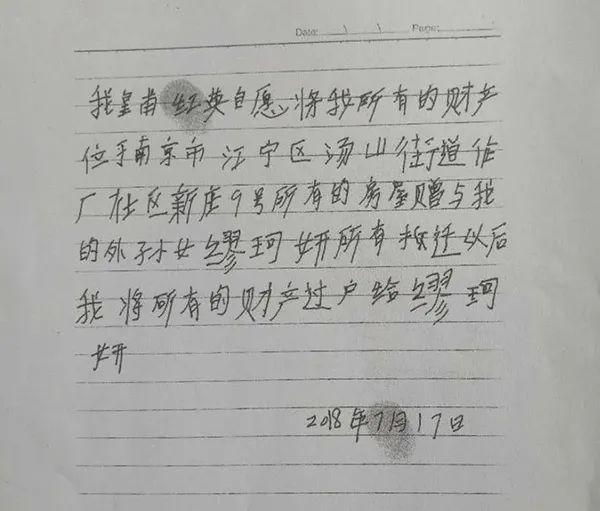 Date: / / Page:
我皇甫红英自愿、将我所有的财产
位于南京市江宁区汤山街道作
厂社区新庄9号所有的房屋赠与我
的外孙女缪珂妍所有拆迁以后
我将所有的财产过户给缪珂
妍
2018年7月17日